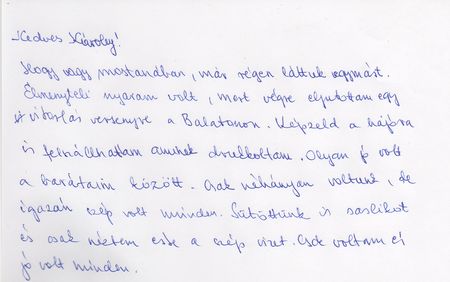 Kedves Károly!
Hogy vagy mostanában, már régen láttuk egymást.
Élményteli nyaram volt, mert végre eljutottam egy
vitorlás versenyre a Balatonon. Képzeld a hajóra
is felszállhattam aminek drukkoltam. Olyan jó volt
a barátaim között. Csak néhányan voltunk, de
igazán szép volt minden. Sütöttünk is saslikot
és csak néztem este a szép vizet. Csak voltam és
jó volt minden.